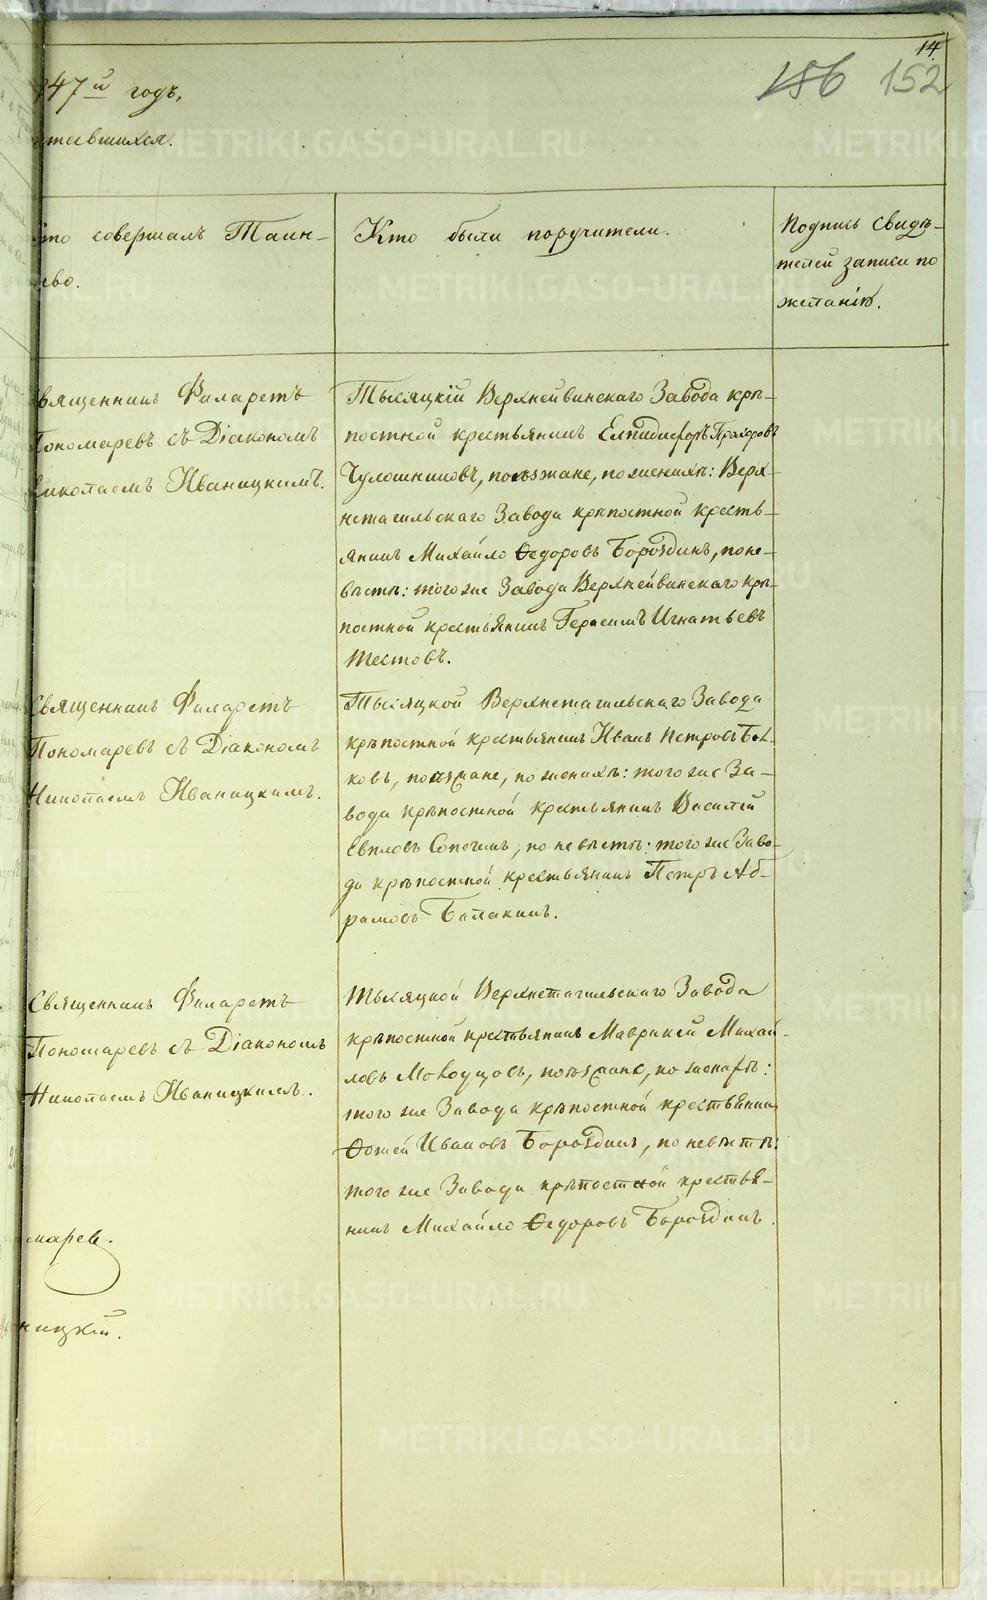 14.
186 152
847й годъ,
тавшихся.
то совершалъ Таин-
ство.
Кто были поручители.
Подпись Свидѣ-
телей записи по
желанію.
Священникъ Филаретъ
Пономаревъ съ Діакономъ
Николаемъ Иваницкимъ.
Тысяцкій Верхнейвинскаго Завода крѣ-
постной крестьянинъ Елпидифоръ Прохоровъ
Чулошниковъ, поѣзжане, по женихѣ: Верх-
нетагильскаго Завода крѣпостной кресть-
янинъ Михайло Ѳедоровъ Бороздинъ, по не-
вѣстѣ: того же Завода Верхнейвинскаго крѣ-
постной крестьянинъ Герасимъ Игнатьевъ
Шестовъ.
Священникъ Филаретъ
Пономаревъ съ Діакономъ
Николаемъ Иваницкимъ.
Тысяцкой Верхнетагильскаго Завода
крѣпостной крестьянинъ Иванъ Петровъ
ковъ, поѣзжане, по женихѣ: того же За-
вода крѣпостной крестьянинъ Василей
Евпловъ Сопегинъ, по невѣстѣ: того же Заво-
да крѣпостной крестьянинъ Петръ Аб-
рамовъ Балакинъ.
Священникъ Филаретъ
Пономаревъ съ Діакономъ
Николаемъ Иваницкимъ.
Тысяцкой Верхнетагильскаго Завода
крѣпостной крестьянинъ Маврикей Михай-
ловъ поѣзжане, по женихѣ:
того же Завода крѣпостной крестьянинъ
Ѳотей Ивановъ Бороздинъ, по невѣстѣ:
того же Завода крѣпостной крестья-
нинъ Михайло Ѳедоровъ Бороздинъ.
марев.
ницкій.
METRIKI.GASO-URAL.RU